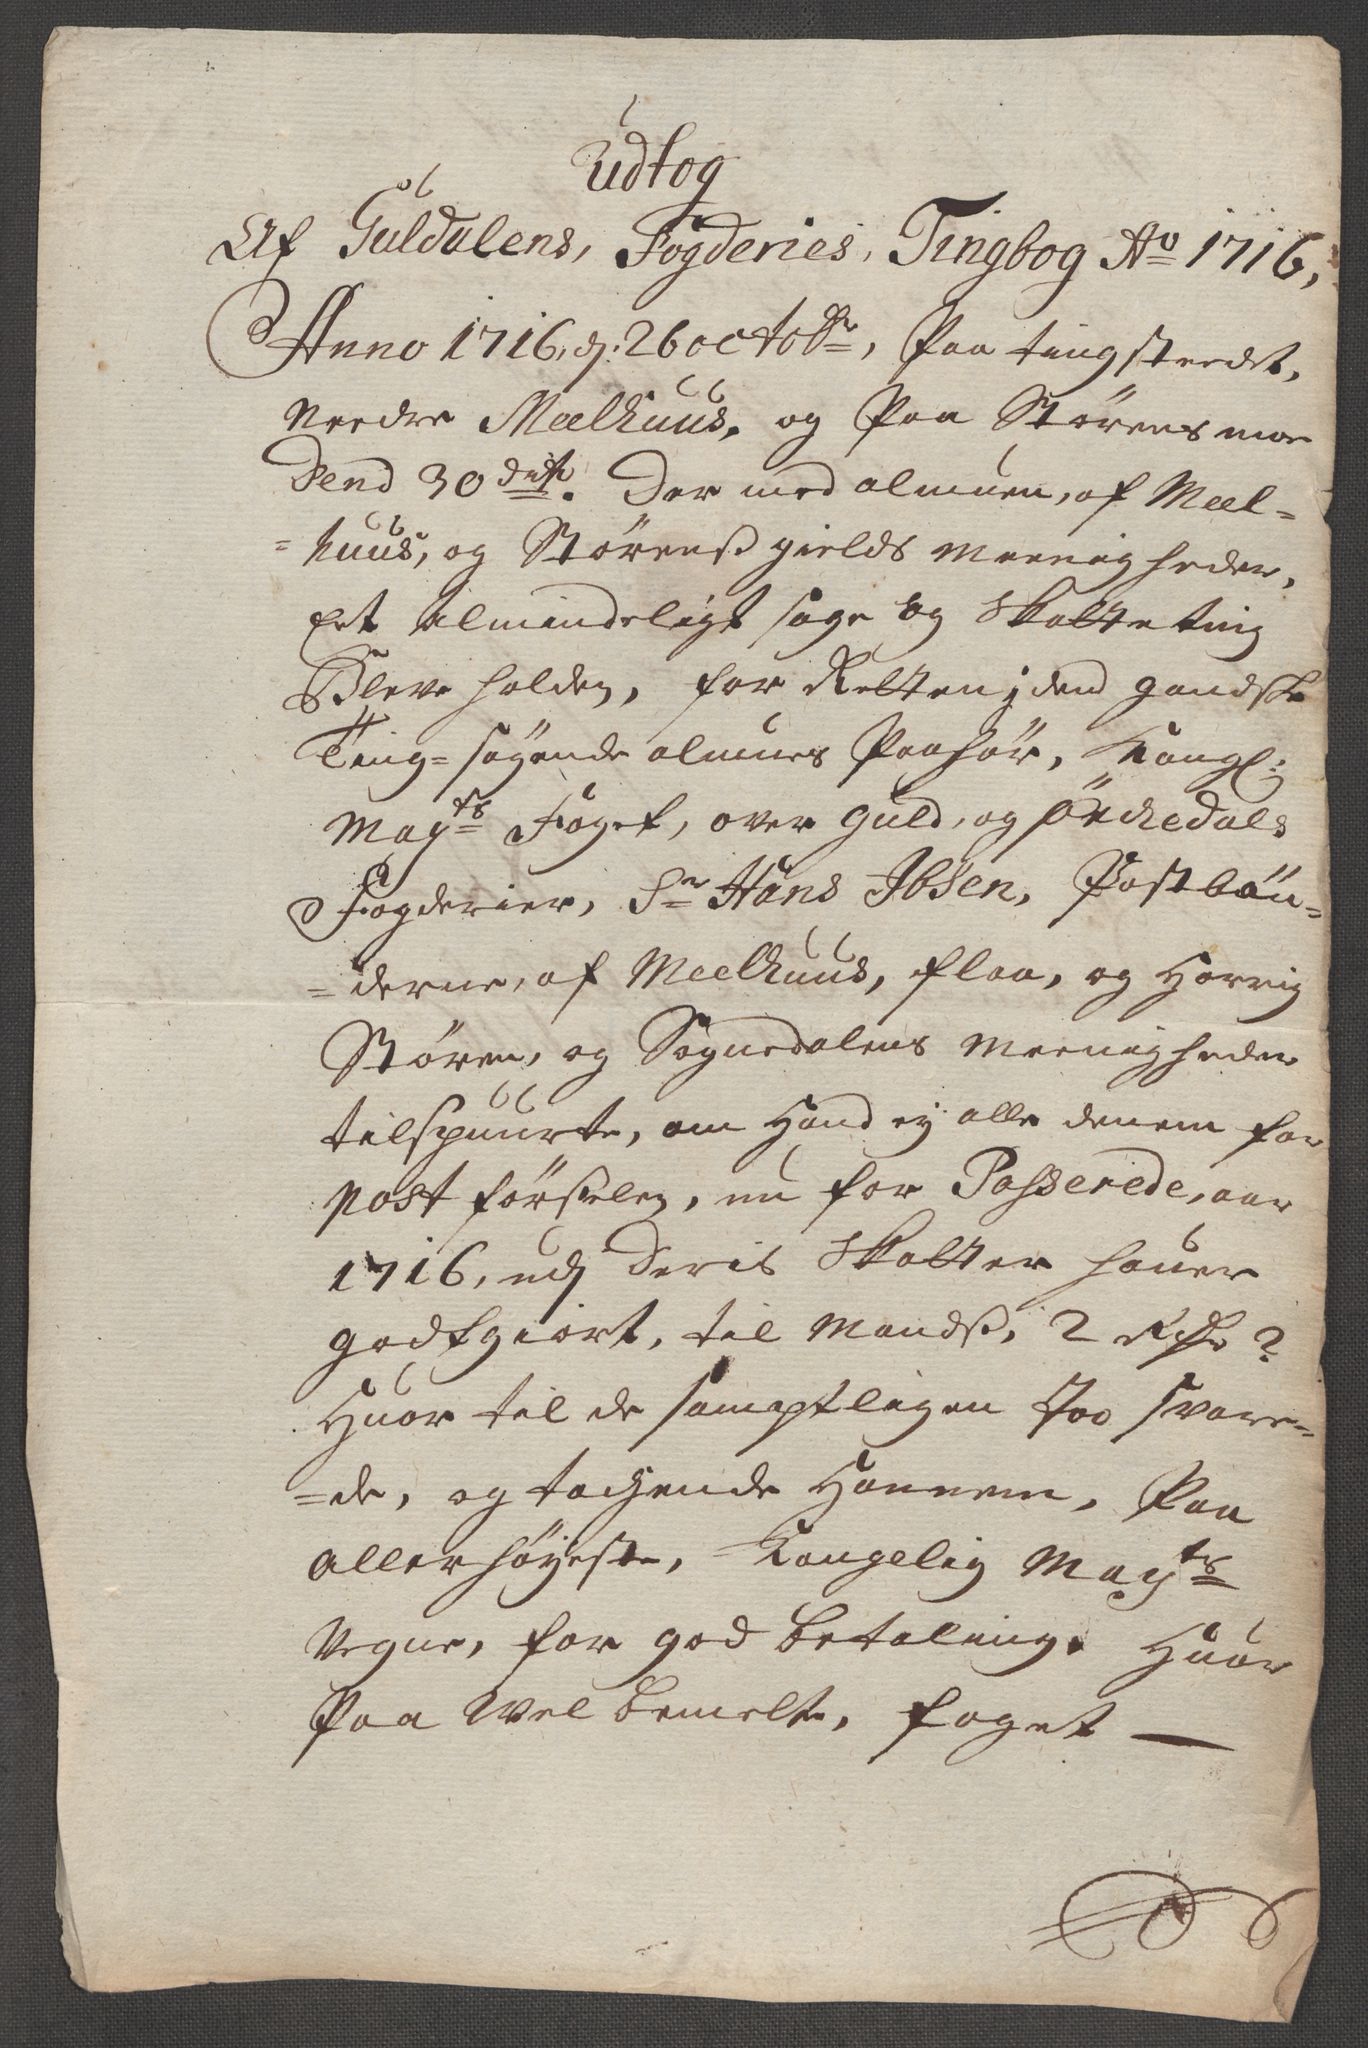 Udtog
Af Guldalens, Fogderies, Tingbog Ao 1716,
Anno 1716, d. 26 octobr, Paa tingstedet,
Needre Meelhuus, og Paa Størens moe
Dend 30 dito. Der med almuen, af Meel-
=huus, og Størens gields Meenigheder,
Et Almindeligt sage og Skatte ting
Bleve holden, for Retten j dend gandske
Ting=søgende almues Paahør, Kongl:
Mayts Foget, over Guld, og Örchedals
Fogderier, Sr Hans Ibsen, Postbøn-
=derne, af Meelhuus, Flaa, og Horrig
Støren, og Sognedalens Meenigheder
tilspuurte, om Hand ej alle dennem for
Post førselen, nu for Passerede, aar
1716, udj Deris Skatter hauer
godtgiort, til Mands, 2 Rdr?
Huor til de samptligen Joe svare-
=de, og tachende Hannem, Paa
allerhøyeste, Kongelig Mayts
Vegne, for god betaling. Huor
Paa Velbemelte, foget —